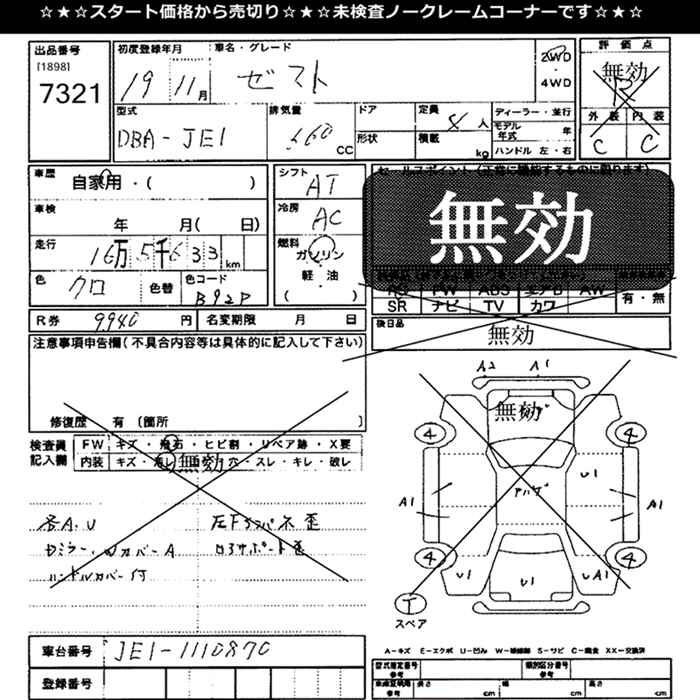 ☆★☆スタート価格から売切り☆★☆未検査ノークレームコーナーです☆★☆
出品番号
[1898]
7321
初度登録年月
19 11月
車名・グレード
ゼスト
2WD
・
4WD
評価点
無効
R
外装 内装
C C
型式
DBA-JE1
排気量
660
CC
ドア
形状
定員
4人
積載
kg
ディーラー・並行
モデル年式 年
ハンドル 左・右
車歴
自家用・( )
シフト
AT
セールスポイント(正常に機能するものに限ります)
無効
車検
年 月( 日)
冷房
AC
走行
16万5千633km
燃料
ガソリン
・
軽・油
( )
色
クロ
色替
色コード
B92P
PW ABS AW
SR ナビ TV カワ
有・無
R券 9940円
名変期限 月 日
後日品
無効
注意事項申告欄(不具合内容等は具体的に記入して下さい)
修復歴 有〔箇所 〕
検査員記入欄
FW キズ・飛石・ヒビ割・リペア跡・X要
内装 キズ・無効・穴・スレ・キレ・破レ
各A.U
左Fインパネ歪
ロアサポート歪
ハンドルカバー付
A2 A1
無効
4 4
A1 U1 A1
4 4
U1 U1 UA1
T
スペア
A-キズ E-エクボ U-凹み W-補修跡 S-サビ C-腐食 XX-交換済
車台番号
JE1-1110870
登録番号
型式指定番号
参考
類別区分番号
参考
車検証明用
参考
長さ cm
幅 cm
高さ cm